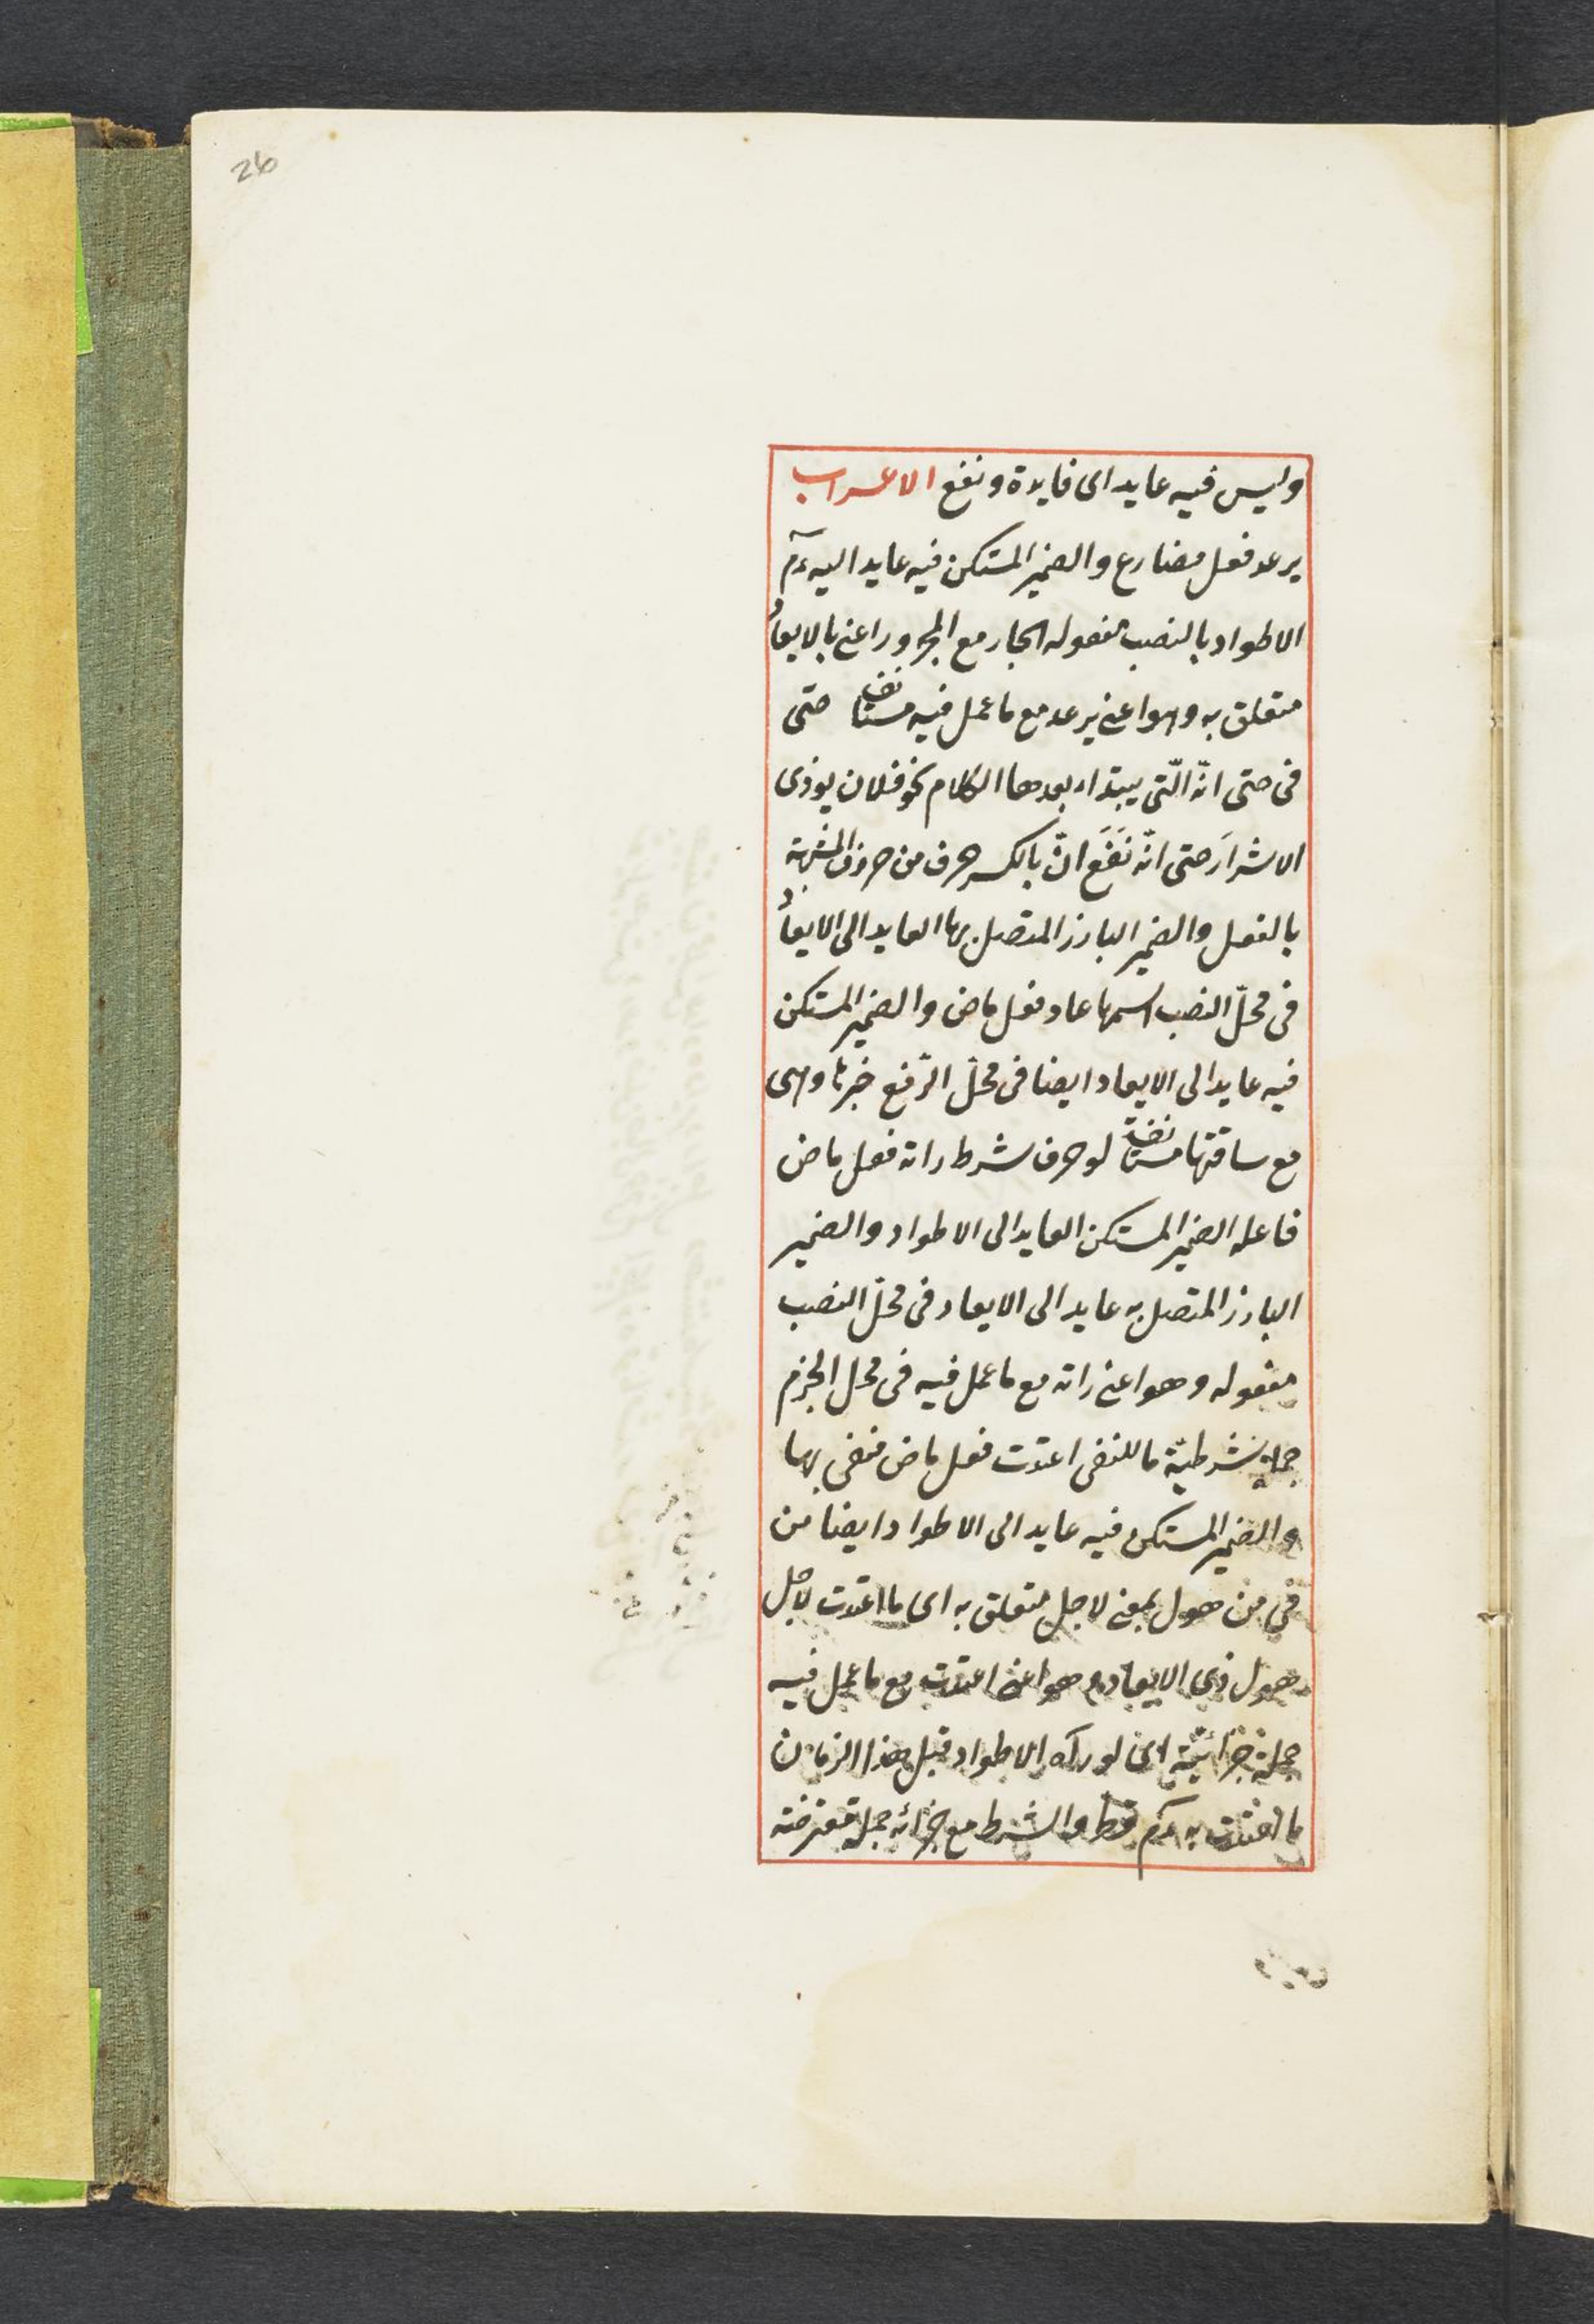 26
وليس فيه عايد اى فايدة ونفع الاعراب
يرعد فعل مضارع والضمير المستكن فيه عايد اليه ءم
الاطواد بالنصب مفعوله الجار مع المجرور اعنى بالايعاد
متعلق به وهو اعنى يرعد مع ما عمل فيه مستانف حتى
فى حتى انّه الّتى يبتداء بعدها الكلام نحو فلان يوذى
الاشرار حتى انّه نَفَعَ انّ بالكسر حرف من حروف المشبهة
بالفعل والضمير البارز المتصل بها العايد الى الايعاد
فى محلّ النصب اسمها عاد فعل ماض والضمير المستكن
فيه عايد الى الايعاد ايضا فى محلّ الرّفع خبرها وهى
مع ساقتها مستانفة لو حرف شرط راته فعل ماض
فاعله الضمير المستكن العايد الى الاطواد والضمير
البارز المتصل به عايد الى الايعاد فى محلّ النصب
مفعوله وهو اعنى راته مع ما عمل فيه فى محل الجزم
جملة شرطيّة ما للنفى اعتدت فعل ماض منفى بها
والضمير المستكن فيه عايد الى الاطواد ايضا من
فى من هول بمعنى لاجل متعلق به اى ما اعتدت لاجل
هول ذى الايعاد وهو اعنى اعتدت مع ما عمل فيه
جملة جزائيّة اى لو رآه الاطواد قبل هذا الزمان
ما اعتدت به ءم قط والشرط مع جزائه جملة معترضة